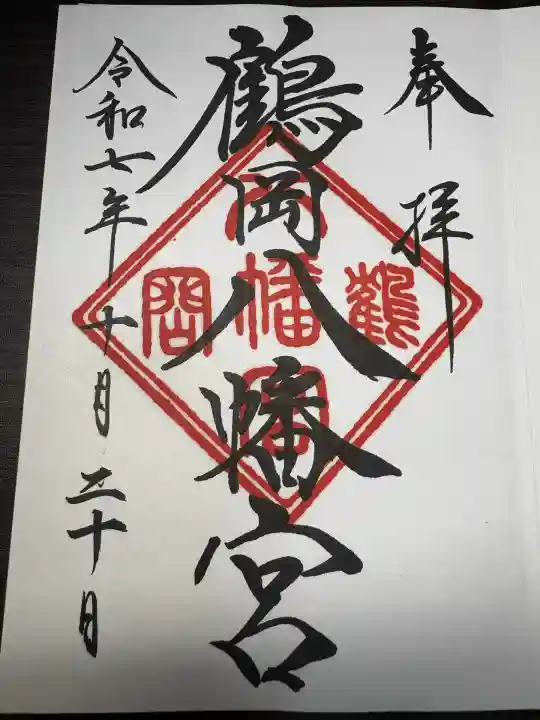 奉拝
鶴岡八幡宮
鶴 幡 岡
令和七年十月二十日